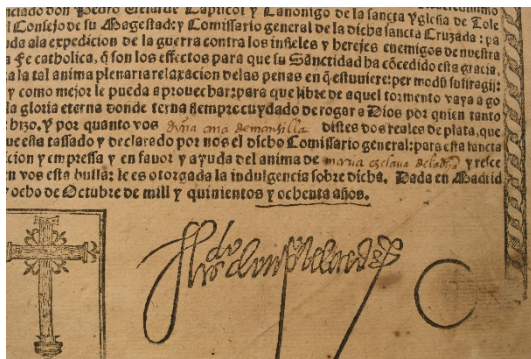 nciado don Pedro Velarde Capiscol y Canonigo de la sancta Yglesia de Tole
l Consejo de su Magestad: y Comissario general de la dicha sancta Cruzada: pa
uda a la expedicion de la guerra contra los infieles y herejes enemigos de nuestra
a Fe catholica, q̃ son los effectos para que su Sanctidad ha cõcedido esta gracia,
a la tal anima plenaria relaxacion de las penas en q̃ estuuiere: per modũ suffragij:
y como mejor le pueda aprouechar: para que libre de aquel tormento vaya a go
la gloria eterna donde terna siempre cuydado de rogar a Dios por quien tanto
hizo. Y por quanto vos doña ana de mansilla distes dos reales de plata, que
que esta tassado y declarado por nos el dicho Comissario general: para esta sancta
cion y empressa y en fauor y ayuda del anima de maria esclaua y resce
en vos esta bulla: le es otorgada la indulgencia sobre dicha. Dada en Madrid
y ocho de Octubre de mill y quinientos y ochenta años.